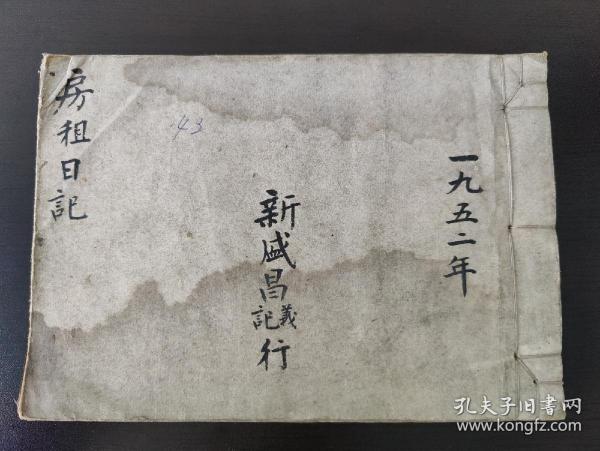 一九五二年
新盛昌義記行
43
房租日記
孔夫子旧书网
www.kongfz.com